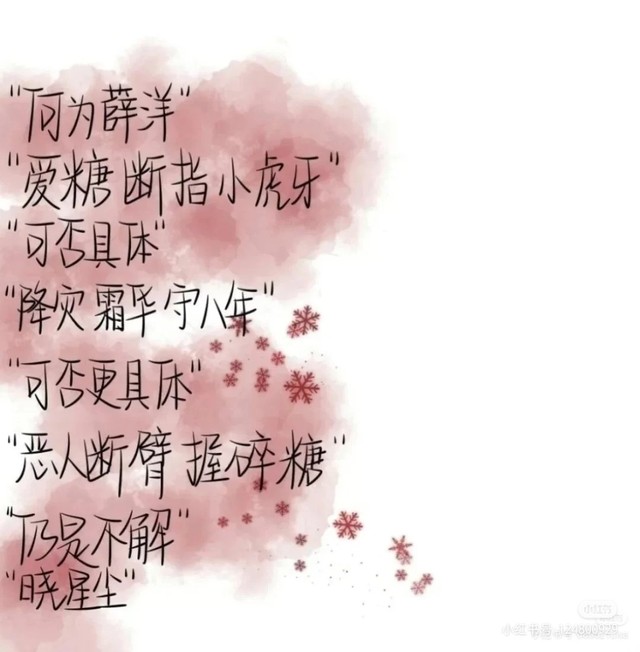 "何为薛洋"
"爱糖断指小虎牙"
"可否具体"
"降灾霜华守八年"
"可否更具体"
"恶人断臂握碎糖"
"仍是不解"
"晓星尘"
小红书